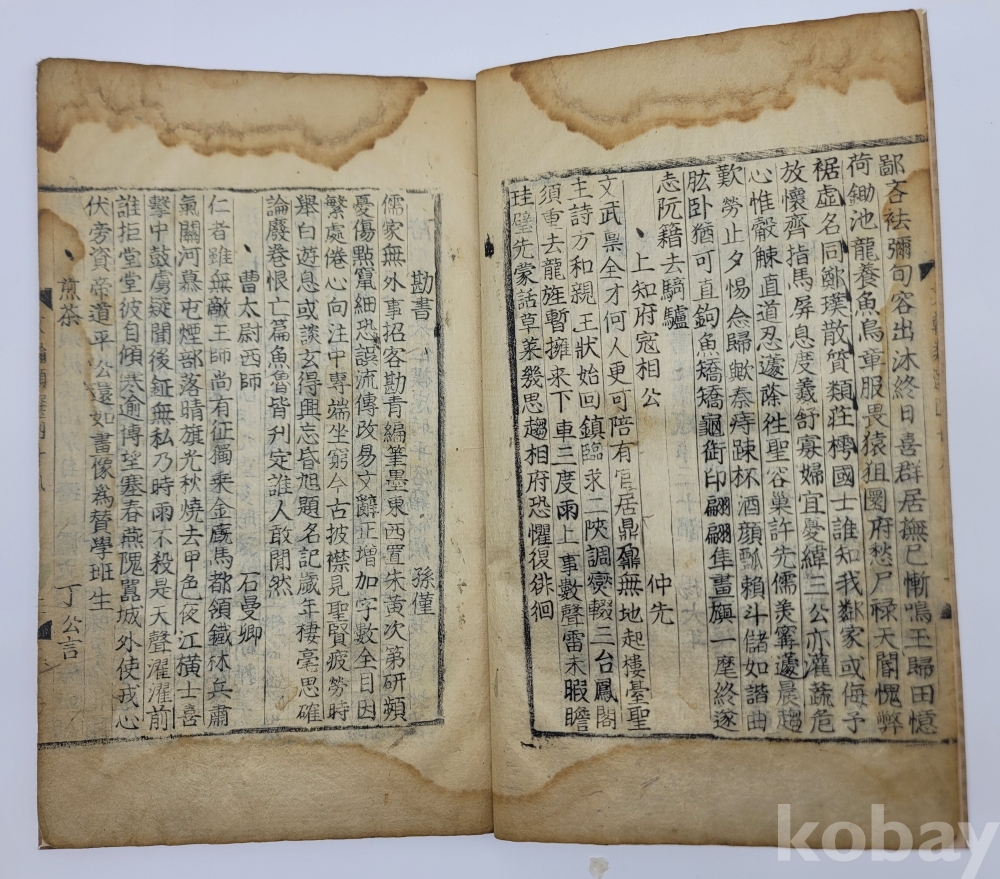 鄙吝袪彌旬容出沐終日喜群居撫已慚鳴玉歸田憶
荷鋤池龍養魚鳥軍服畏猿狙園府愁尸祿天閽愧弊
裾虛名同鄭璞散質類莊樗國士誰知我鄰家或侮予
放懷齊指馬屏息度羲舒寡婦宜憂緯三公亦灌蔬危
心惟觳觫直道忍蘧蒢徃聖容巢許先儒美甯蘧晨趨
歎勞止夕惕念歸歟秦痔疎杯酒顏瓢賴斗儲如諧曲
肱卧猶可直鉤魚矯矯龜銜印翩翩隼畫旟一麾終遂
志阮籍去騎驢
上知府寇相公 仲先
文武稟全才何人更可陪有官居鼎鼐無地起樓臺聖
主詩方和親王狀始回鎮臨求二陜調燮輟三台鳳閣
須重去龍旌暫擁来下車三度雨上事數聲雷未暇瞻
珪璧先蒙話草萊幾思趨相府恐懼復徘徊
勘書 孫僅
儒家無外事招客勘青編筆墨東西置朱黃次第研頻
憂傷點竄細恐誤流傳改易文辭正增加字數全目因
繁處倦心向注中專端坐窮今古披襟見聖賢疲勞時
舉白遊息或談玄得興忘昏旭題名記歲年棲毫思確
論廢卷恨亡篇魚魯皆刋定誰人敢閒然
曹太尉西師 石曼卿
仁者雖無敵王師尚有征獨乘金廐馬都領鐵林兵肅
氣關河慕屯煙部落晴旗光秋燒去甲色夜江橫士喜
擊中鼓虜疑聞後鉦無私乃時雨不殺是天聲濯濯前
誰拒堂堂彼自傾寒逾博望塞春燕隗囂城外使戎心
伏旁資帝道平公還如畫像爲贊學班生
煎茶 丁公言
kobay